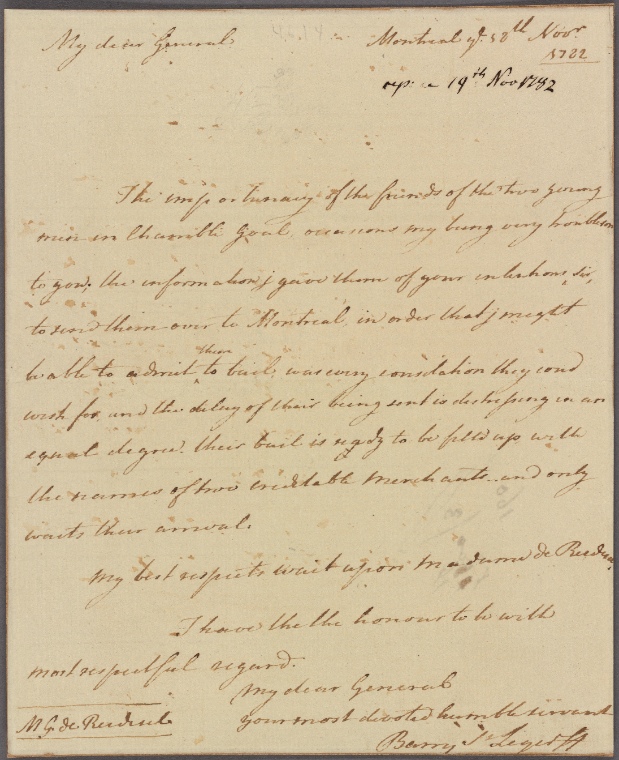 My dear General
Montreal ye 18th Novr
1782
19th Nov 1782
The importunacy of the friends of the two young
men in Chamblé Goal, occasions my being very troublesom
to you. the information j gave them of your intentions, sir,
to send them over to Montreal, in order that j might
be able to admit them to bail, was every consolation they coud
wish for and the delay of their being sent is distressing in an
equal degree. their bail is ready to be fill'd up with
the names of two creditable Merchants, and only
waits their arrival.
My best respects wait upon Madame de Riedesel.
I have the the honour to be with
most respectful regard.
My dear General
your most devoted humble servant
Barry St Leger
M G. de Riedesel